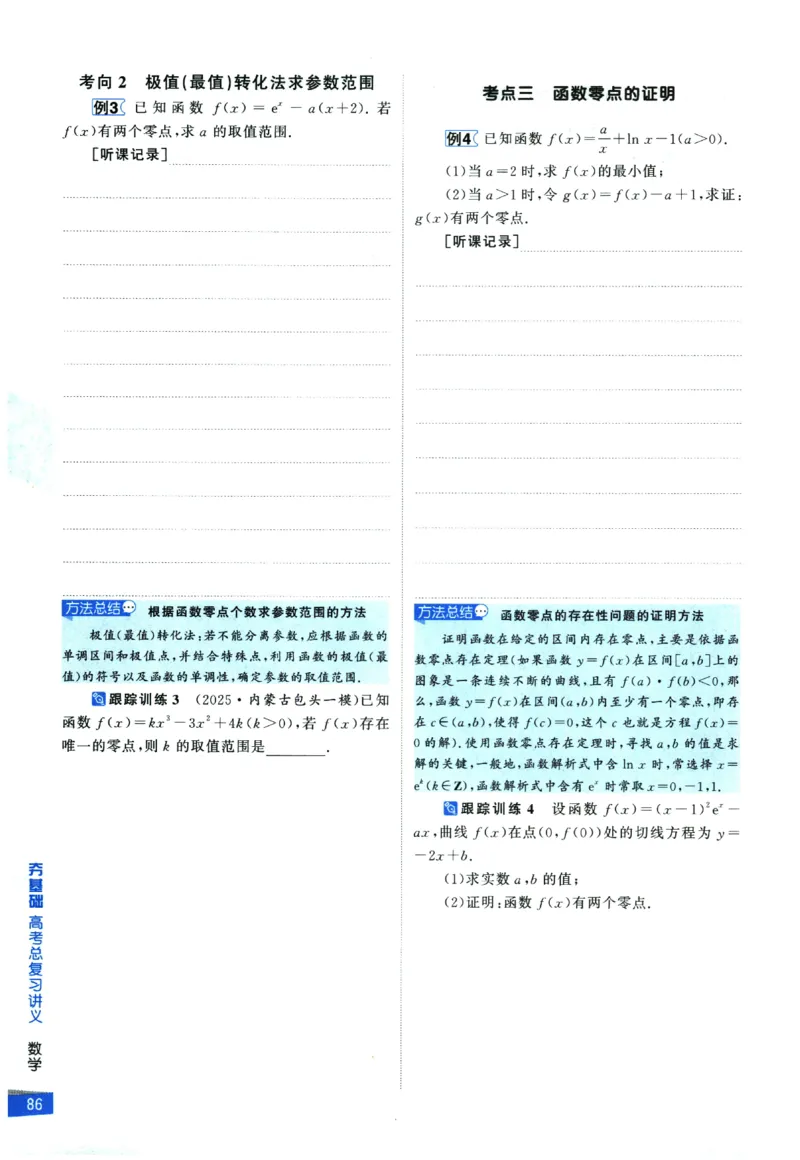 考向 2 极值(最值)转化法求参数范围
例3 已知函数 f(x) = eˣ - a(x+2). 若
f(x)有两个零点,求 a 的取值范围.
[听课记录]
方法总结 根据函数零点个数求参数范围的方法
极值(最值)转化法:若不能分离参数,应根据函数的
单调区间和极值点,并结合特殊点,利用函数的极值(最
值)的符号以及函数的单调性,确定参数的取值范围.
跟踪训练 3 (2025·内蒙古包头一模)已知
函数 f(x)=kx³-3x²+4k(k>0),若 f(x)存在
唯一的零点,则 k 的取值范围是________.
考点三 函数零点的证明
例4 已知函数 f(x)=a/x+ln x-1(a>0).
(1)当 a=2 时,求 f(x)的最小值;
(2)当 a>1 时,令 g(x)=f(x)-a+1,求证:
g(x)有两个零点.
[听课记录]
方法总结 函数零点的存在性问题的证明方法
证明函数在给定的区间内存在零点,主要是依据函
数零点存在定理(如果函数 y=f(x)在区间[a,b]上的
图象是一条连续不断的曲线,且有 f(a)·f(b)<0,那
么,函数 y=f(x)在区间(a,b)内至少有一个零点,即存
在 c∈(a,b),使得 f(c)=0,这个 c 也就是方程 f(x)=
0 的解).使用函数零点存在定理时,寻找 a,b 的值是求
解的关键,一般地,函数解析式中含 ln x 时,常选择 x=
eᵏ(k∈Z),函数解析式中含有 eˣ 时常取 x=0,-1,1.
跟踪训练 4 设函数 f(x)=(x-1)²eˣ-
ax,曲线 f(x)在点(0,f(0))处的切线方程为 y=
-2x+b.
(1)求实数 a,b 的值;
(2)证明:函数 f(x)有两个零点.
夯基础 高考总复习讲义 数学
86